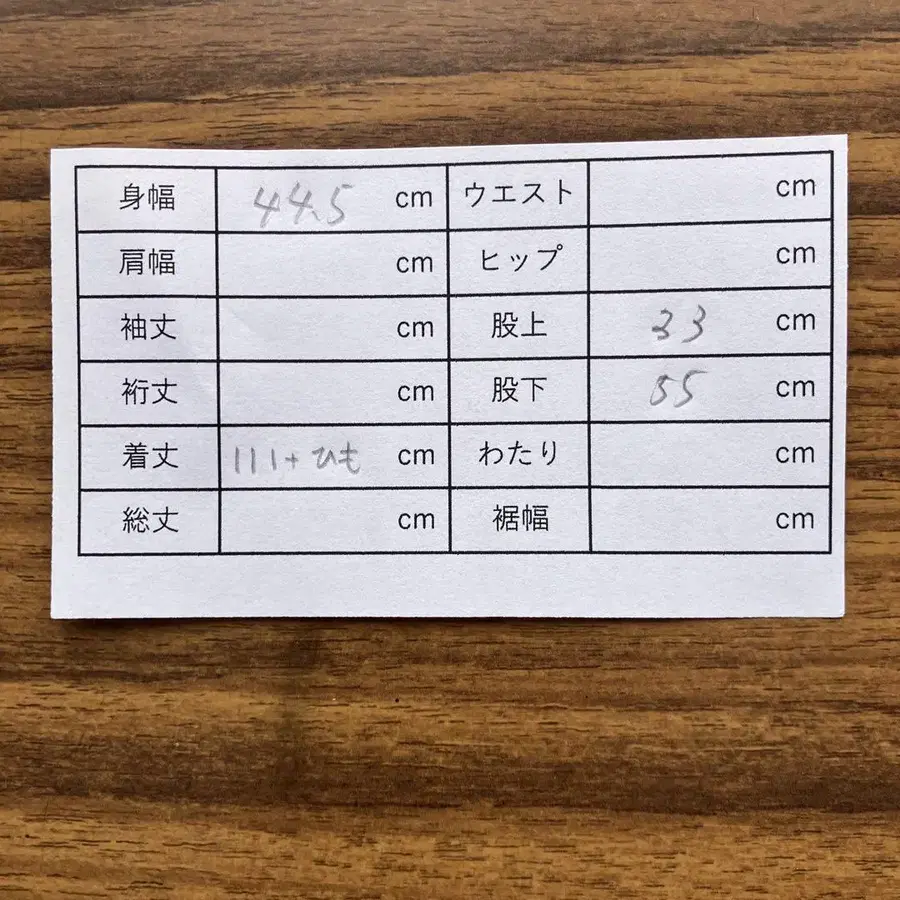 身幅 44.5 cm ウエスト cm
肩幅 cm ヒップ cm
袖丈 cm 股上 33 cm
裄丈 cm 股下 55 cm
着丈 111+ひも cm わたり cm
総丈 cm 裾幅 cm